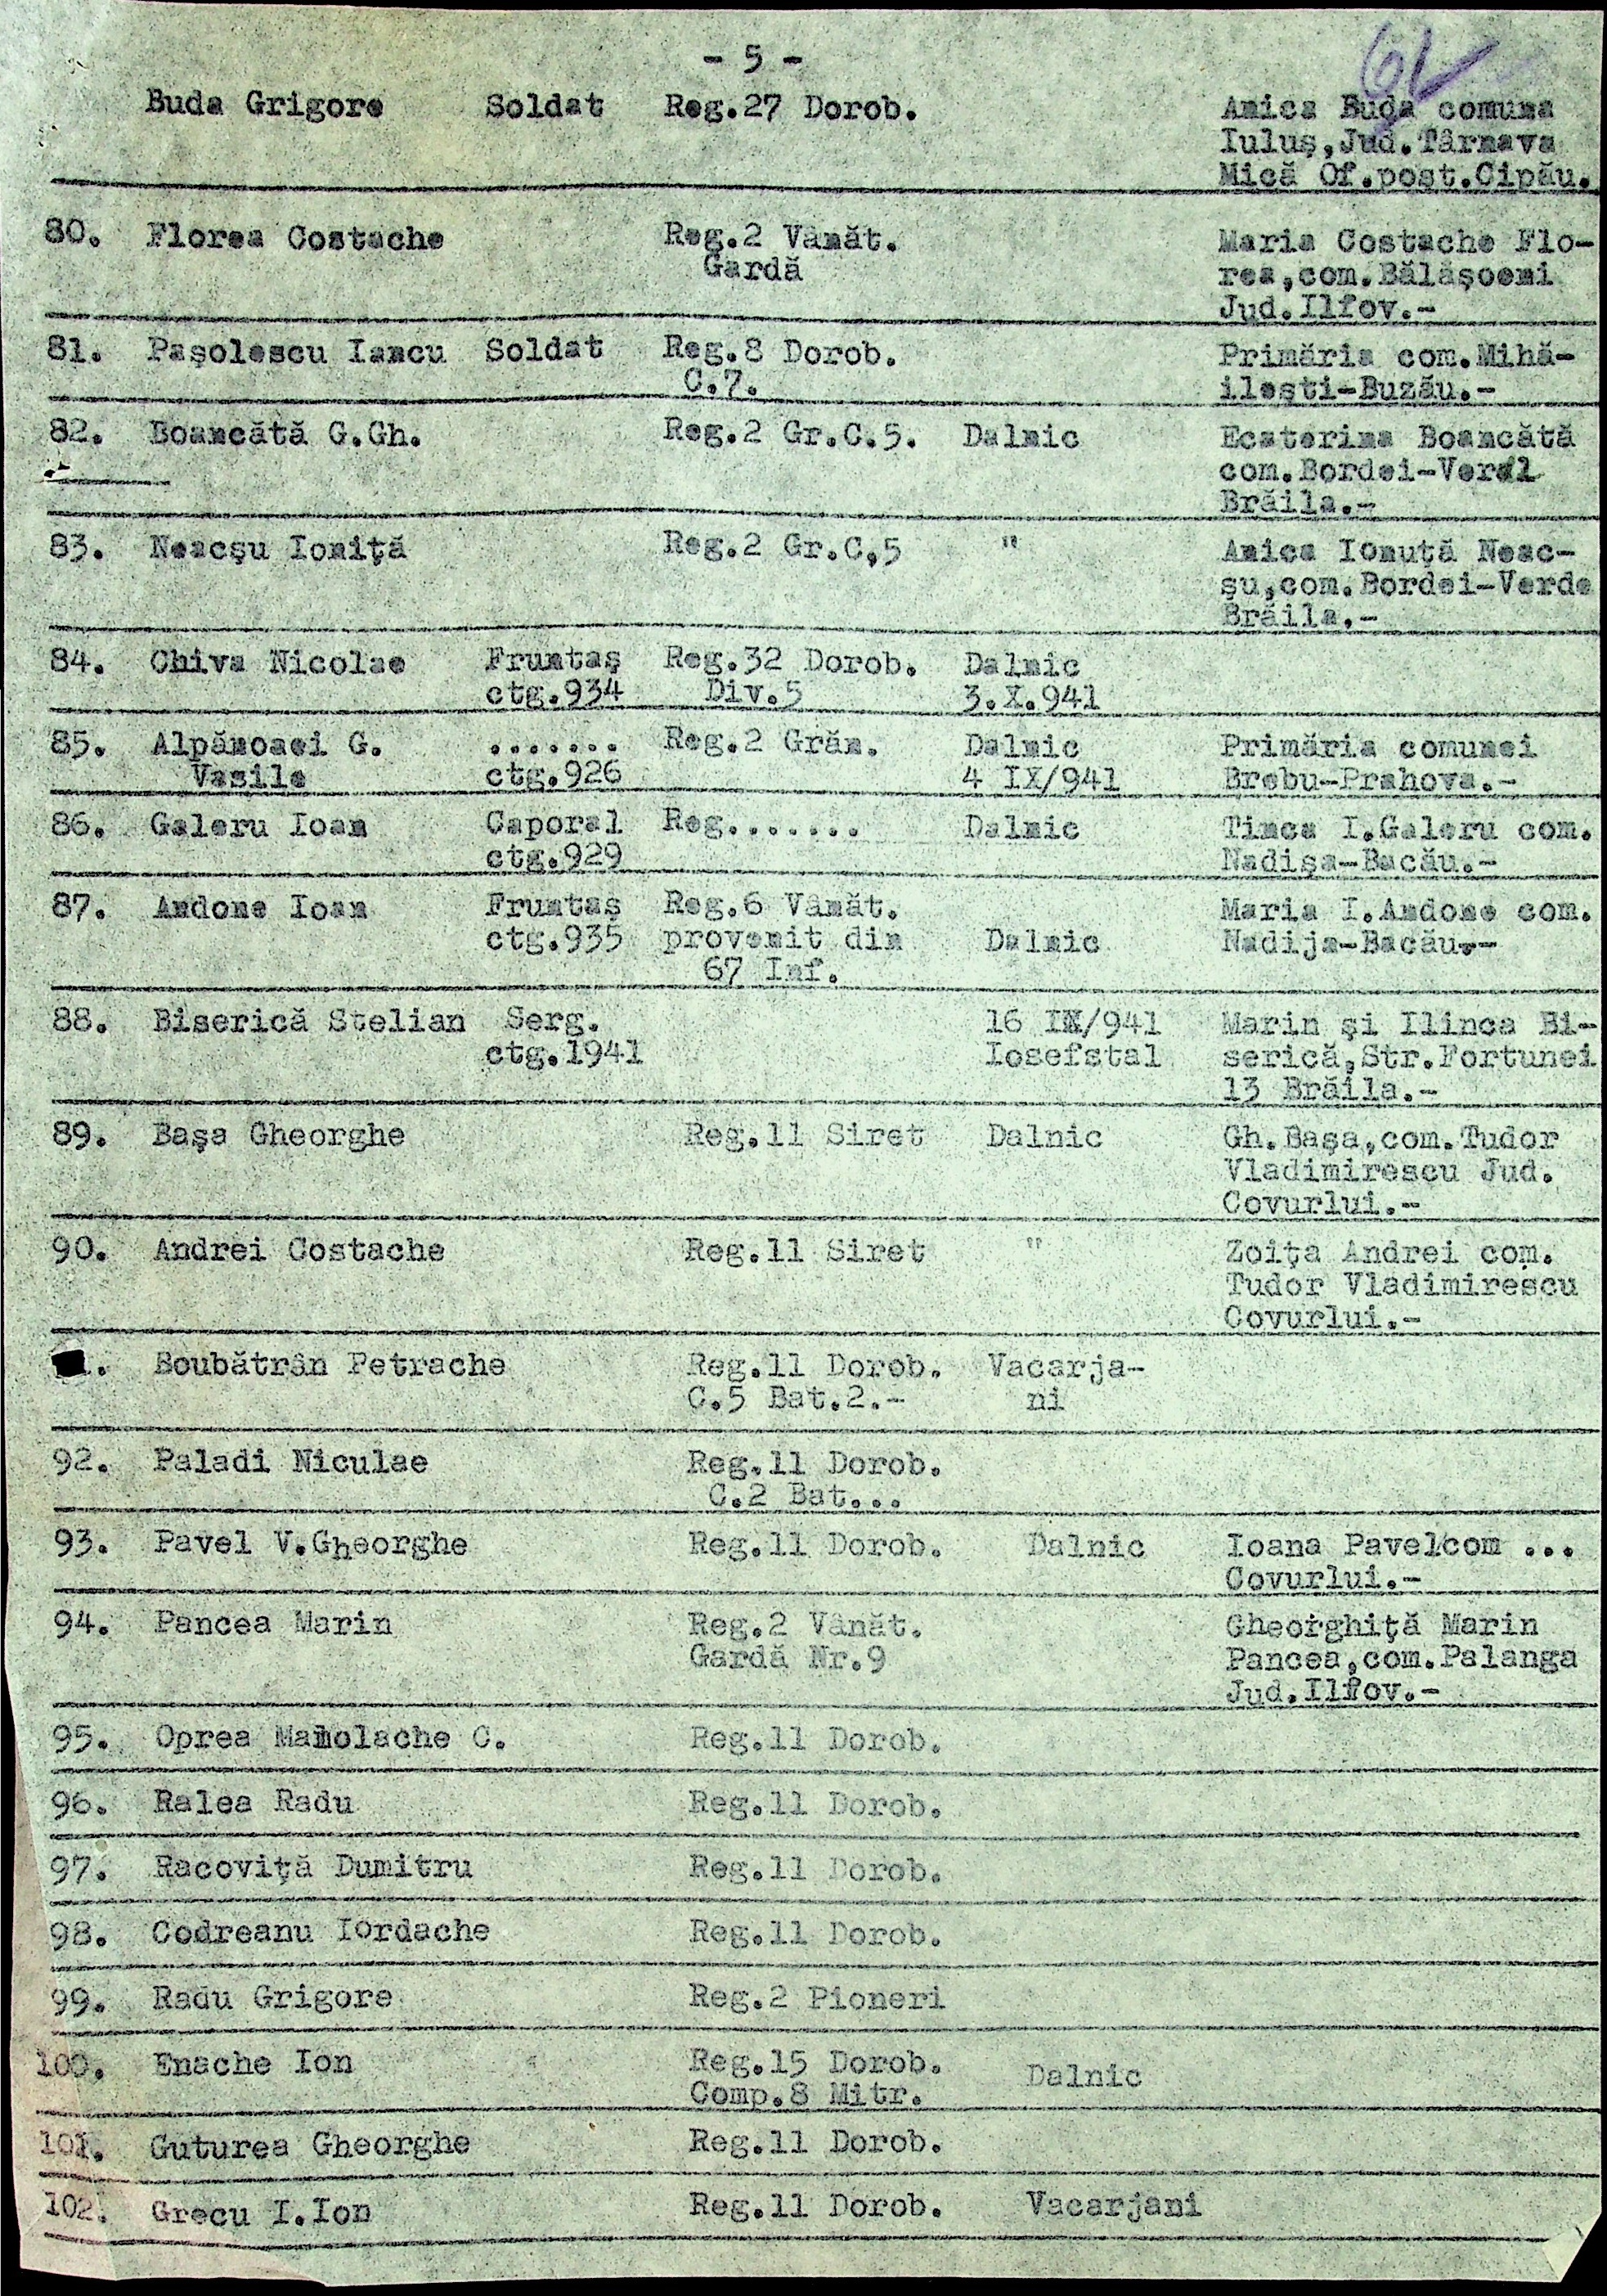 - 5 -
61
Buda Grigore Soldat Reg.27 Dorob. Anica Buda comuna
Iuluş,Jud.Târnava
Mică Of.post.Cipău.
80. Florea Costache Reg.2 Vânăt. Maria Costache Flo-
Gardă rea,com.Bălăşoeni
Jud.Ilfov.-
81. Paşolescu Iancu Soldat Reg.8 Dorob. Primăria com.Mihă-
C.7. ileşti-Buzău.-
82. Boancătă G.Gh. Reg.2 Gr.C.5. Dalnic Ecaterina Boancătă
com.Bordei-Verdl
Brăila.-
83. Neacşu Ioniţă Reg.2 Gr.C,5 " Anica Ionuţă Neac-
şu,com.Bordei-Verde
Brăila.-
84. Chiva Nicolae Fruntaş Reg.32 Dorob. Dalnic
ctg.934 Div.5 3.X.941
85. Alpănoaei G. ....... Reg.2 Grăn. Dalnic Primăria comunei
Vasile ctg.926 4 IX/941 Brebu-Prahova.-
86. Galeru Ioan Caporal Reg....... Dalnic Tinca I.Galeru com.
ctg.929 Nadişa-Bacău.-
87. Andone Ioan Fruntaş Reg.6 Vânăt. Maria I.Andone com.
ctg.935 provenit din Dalnic Nadija-Bacău.-
67 Inf.
88. Biserică Stelian Serg. 16 IX/941 Marin şi Ilinca Bi-
ctg.1941 Iosefstal serică,Str.Fortunei
13 Brăila.-
89. Başa Gheorghe Reg.11 Siret Dalnic Gh.Başa,com.Tudor
Vladimirescu Jud.
Covurlui.-
90. Andrei Costache Reg.11 Siret " Zoiţa Andrei com.
" Tudor Vladimirescu
Covurlui.-
1. Boubătrân Petrache Reg.11 Dorob. Vacarja-
C.5 Bat.2.- ni
92. Paladi Niculae Reg.11 Dorob.
C.2 Bat...
93. Pavel V.Gheorghe Reg.11 Dorob. Dalnic Ioana Pavel/com ...
Covurlui.-
94. Pancea Marin Reg.2 Vânăt. Gheorghiţă Marin
Gardă Nr.9 Pancea,com.Palanga
Jud.Ilfov.-
95. Oprea Manolache C. Reg.11 Dorob.
96. Ralea Radu Reg.11 Dorob.
97. Racoviţă Dumitru Reg.11 Dorob.
98. Codreanu Iordache Reg.11 Dorob.
99. Radu Grigore Reg.2 Pioneri
100. Enache Ion Reg.15 Dorob. Dalnic
Comp.8 Mitr.
101. Guturea Gheorghe Reg.11 Dorob.
102. Grecu I.Ion Reg.11 Dorob. Vacarjani